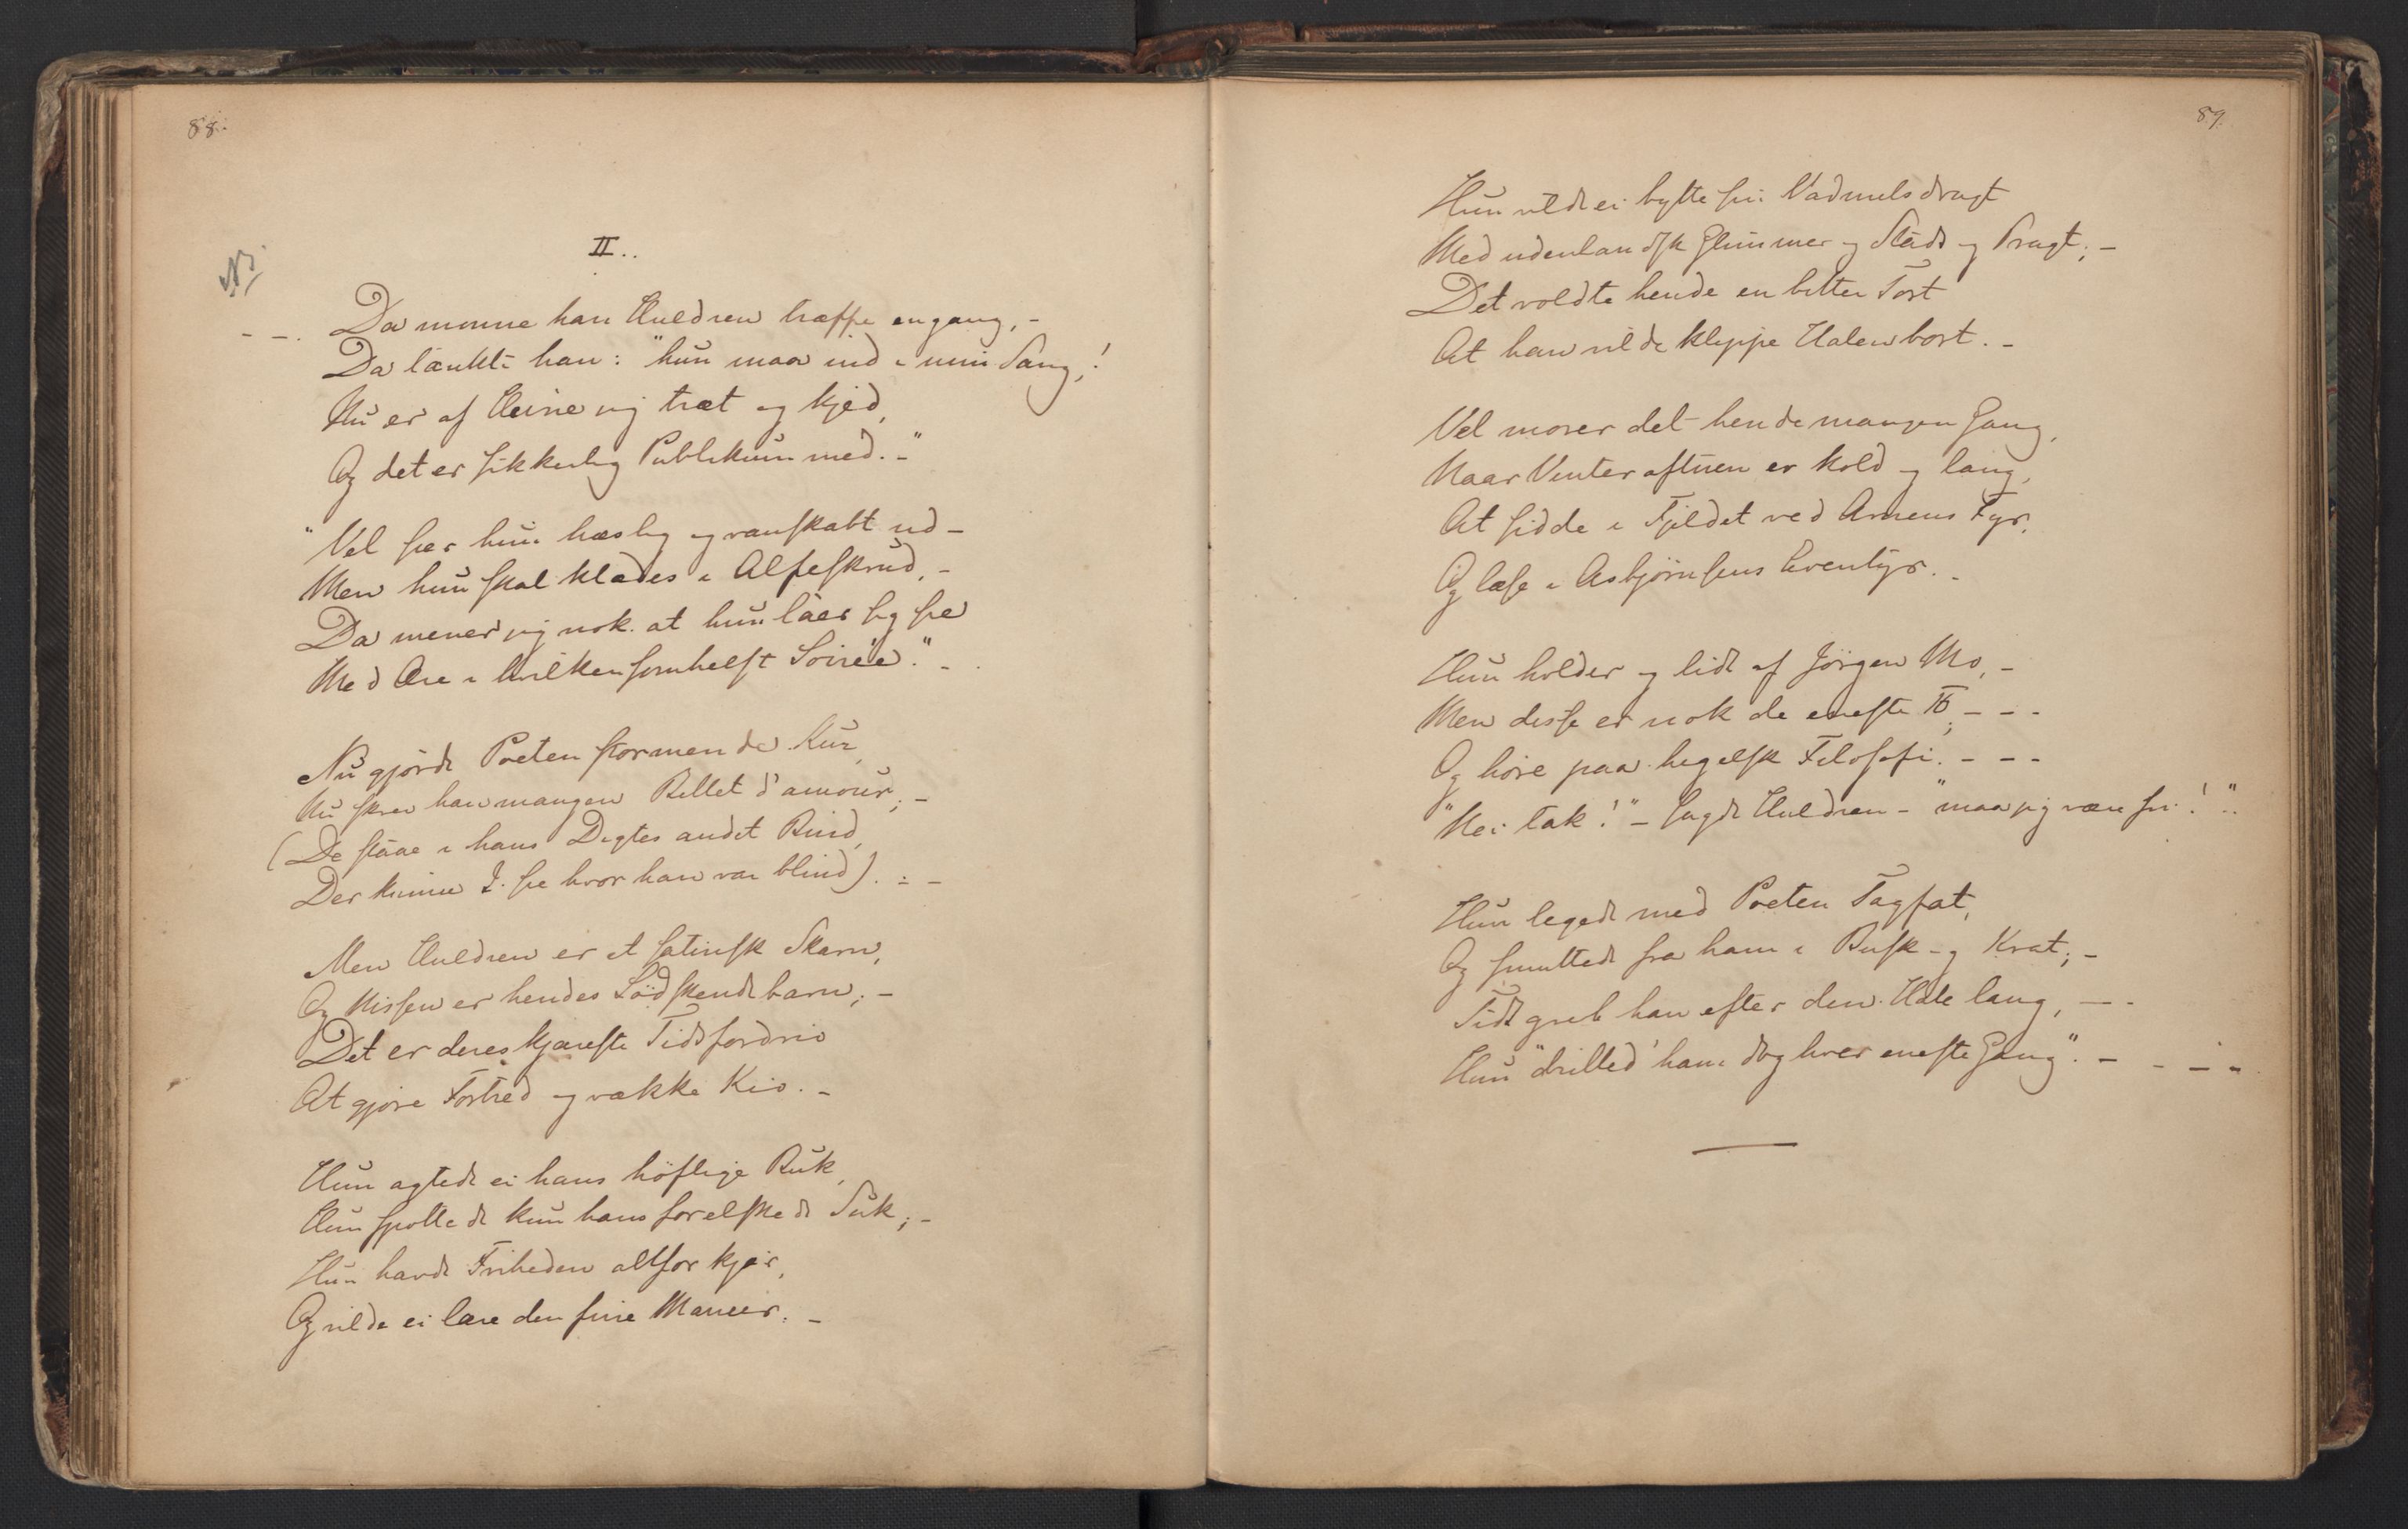 88.
II..
NB.
– –. Da monne han Huldren træffe engang, –
Da tænkte han: "hun maa ind i min Sang,!
Nu er af Heine jeg træt og kjed,
Og det er sikkerlig Publikum med. –"
"Vel seer hun hæslig og vanskabt ud –
Men hun skal klædes i Alfeskrud, –
Da mener jeg nok at hun lāer sig see
Med Ære i hvilkensomhelst Soirée." –
Nu gjörde Poeten stormende Kur,
Nu skrev han mangen Billet d'amour; –
(De stāae i hans Digtes andet Bind,
Der kunne I. see hvor han var blind). : –
Men Huldren er et satirisk Skarn,
Og Nissen er hendes Södskendebarn; –
Det er deres kjæreste Tidsfordriv
At gjøre Fortred og vække Kiv. –
Hun agtede ei hans höflige Buk,
Hun spottede kun hans forelskede Suk; –
Hun havde Friheden altfor kjær,
Og vilde ei lære den fine Maneer. –
89.
Hun vilde ei bytte sin Vadmelsdragt
Med udenlandsk Glimmer og Stads og Pragt; –
Det voldte hende en bitter Tort
At han vilde klyppe Halen bort. –
Vel morer det hende mangen Gang,
Naar Vinteraftnen er kold og lang,
At sidde i Fjeldet ved Arnens Fyr.
Og læse i Asbjørnsens Eventyr. –
Hun holder og lidt af Jörgen Mo, –
Men disse er nok de eneste To; – – –
Og høre paa hegelsk Filosofi. – – –
"Nei tak!" – sagde Huldren – "maa jeg være fri!"..
Hun legede med Poeten Tagfat,
Og smuttede fra ham i Busk og Krat; –
Tidt greb han efter den Hale lang, – –
Hun "drilled' ham dog hver eneste Gang". – – – –